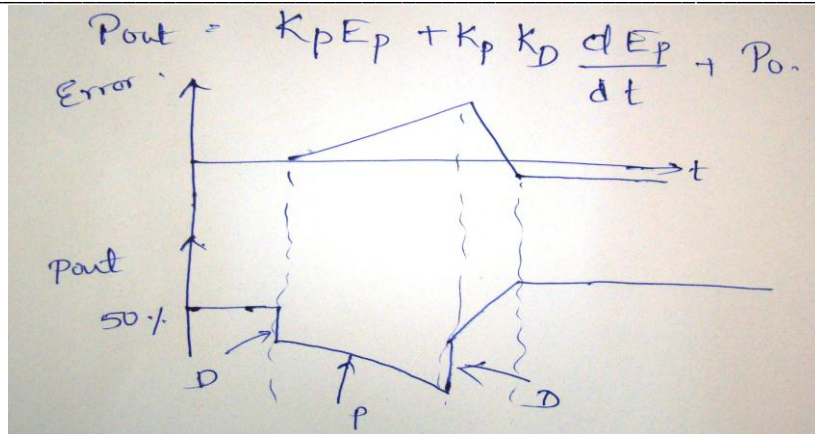 Pout = KpEp + Kp KD dEp/dt + Po.
Error.
t
Pout
50%
D
P
D